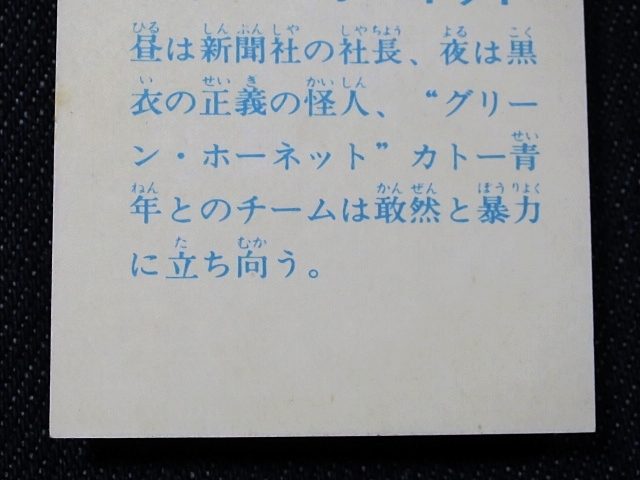 昼は新聞社の社長、夜は黒
衣の正義の怪人、“グリー
ン・ホーネット”カトー青
年とのチームは敢然と暴力
に立ち向う。